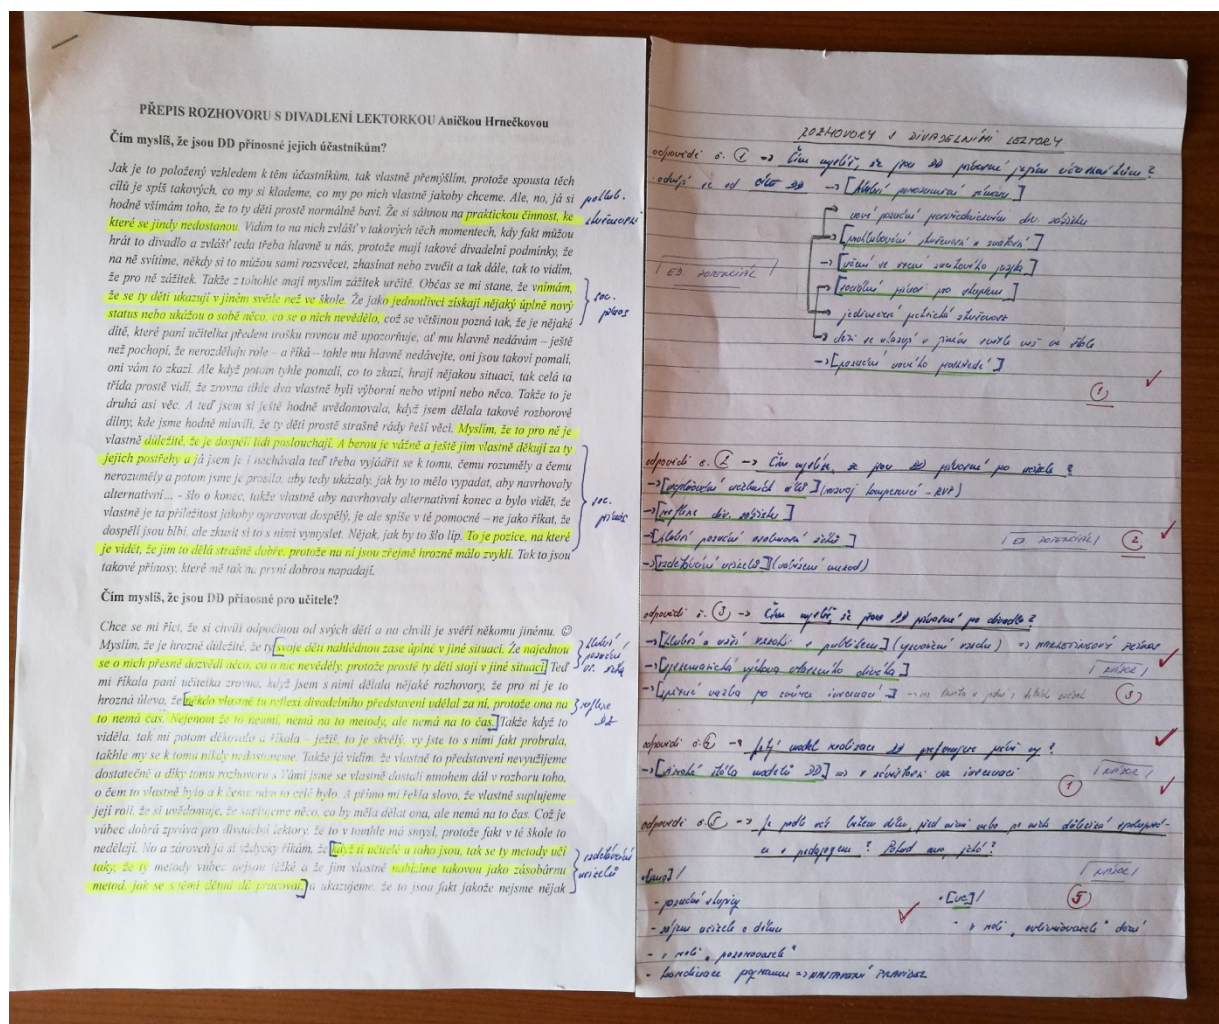 PŘEPIS ROZHOVORU S DIVADLENÍ LEKTORKOU Aničkou Hrnečkovou
Čím myslíš, že jsou DD přínosné jejich účastníkům?
Jak je to položený vzhledem k těm účastníkům, tak vlastně přemýšlím, protože spousta těch
cílů je spíš takových, co my si klademe, co my po nich vlastně jakoby chceme. Ale, no, já si
hodně všímám toho, že to ty děti prostě normálně baví. Že si sáhnou na praktickou činnost, ke
které se jindy nedostanou. Vidím to na nich zvlášť v takových těch momentech, kdy fakt můžou
hrát to divadlo a zvlášť teda třeba hlavně u nás, protože mají takové divadelní podmínky, že
na ně svítíme, někdy si to můžou sami rozsvěcet, zhasínat nebo zvučit a tak dále, tak to vidím,
že pro ně zážitek. Takže z tohohle mají myslím zážitek určitě. Občas se mi stane, že vnímám,
že se ty děti ukazují v jiném světle než ve škole. Že jako jednotlivci získají nějaký úplně nový
status nebo ukážou o sobě něco, co se o nich nevědělo, což se většinou pozná tak, že je nějaké
dítě, které paní učitelka předem trošku rovnou mě upozorňuje, ať mu hlavně nedávám – ještě
než pochopí, že nerozděluju role – a říká – tohle mu hlavně nedávejte, oni jsou takoví pomalí,
oni vám to zkazí. Ale když potom tyhle pomalí, co to zkazí, hrají nějakou situaci, tak celá ta
třída prostě vidí, že zrovna tihle dva vlastně byli výborní nebo vtipní nebo něco. Takže to je
druhá asi věc. A teď jsem si ještě hodně uvědomovala, když jsem dělala takové rozborové
dílny, kde jsme hodně mluvili, že ty děti prostě strašně rády řeší věci. Myslím, že to pro ně je
vlastně důležité, že je dospělí lidi poslouchají. A berou je vážně a ještě jim vlastně děkují za ty
jejich postřehy a já jsem je i nechávala teď třeba vyjádřit se k tomu, čemu rozuměly a čemu
nerozuměly a potom jsme je prosila, aby tedy ukázaly, jak by to mělo vypadat, aby navrhovaly
alternativní... - šlo o konec, takže vlastně aby navrhovaly alternativní konec a bylo vidět, že
vlastně je ta příležitost jakoby opravovat dospělý, je ale spíše v té pomocné – ne jako říkat, že
dospělí jsou blbí, ale zkusit si to s nimi vymyslet. Nějak, jak by to šlo líp. To je pozice, na které
je vidět, že jim to dělá strašně dobře, protože na ni jsou zřejmě hrozně málo zvyklí. Tak to jsou
takové přínosy, které mě tak na první dobrou napadají.
pohlub.
dovedností
soc.
přínos
soc.
přínos
Čím myslíš, že jsou DD přínosné pro učitele?
Chce se mi říct, že si chvíli odpočinou od svých dětí a na chvíli je svěří někomu jinému. ☺
Myslím, že je hrozně důležité, že ty svoje děti nahlédnou zase úplně v jiné situaci. Že najednou
se o nich přesně dozvědí něco, co o nic nevěděly, protože prostě ty děti stojí v jiné situaci. Teď
mi říkala paní učitelka zrovna, když jsem s nimi dělala nějaké rozhovory, že pro ní je to
hrozná úleva, že někdo vlastně tu reflexi divadelního představení udělal za ni, protože ona na
to nemá čas. Nejenom že to neumí, nemá na to metody, ale nemá na to čas. Takže když to
viděla, tak mi potom děkovala a říkala – ježiš, to je skvělý, vy jste to s nimi fakt probrala,
takhle my se k tomu nikdy nedostaneme. Takže já vidím, že vlastně to představení nevyužijeme
dostatečně a díky tomu rozhovoru s Vámi jsme se vlastně dostali mnohem dál v rozboru toho,
o čem to vlastně bylo a k čemu nám to celé bylo. A přímo mi řekla slovo, že vlastně suplujeme
její roli, že si uvědomuje, že suplujeme něco, co by měla dělat ona, ale nemá na to čas. Což je
vůbec dobrá zpráva pro divadelní lektory, že to v tomhle má smysl, protože fakt v té škole to
nedělejí. No a zároveň já si vždycky říkám, že když ti učitelé u toho jsou, tak se ty metody učí
taky, že ty metody vůbec nejsou těžké a že jim vlastně nabízíme takovou jako zásobárnu
metod, jak se s těmi dětmi dá pracovat, a ukazujeme, že to jsou fakt jakože nejsme nějak
hlubší
poznání
os. žáka
reflexe
DZ
vzdělávání
učitelů
ROZHOVORY S DIVADELNÍMI LEKTORY
odpovědi č. 1 -> Čím myslíš, že jsou DD přínosné jejím účastníkům?
-odvíjí se od cíle DD -> [hlubší porozumění tématu]
nové poznání prostřednictvím div. zážitku
[prohlubování dovedností a znalostí]
-> [učení se čtení znakového jazyka]
ED. POTENCIÁL
[sociální přínos pro skupinu]
jedinečná prožitková zkušenost
děti se ukazují v jiném světle než ve škole
-> [poznání nového prostředí]
1
odpovědi č. 2 -> Čím myslíte, že jsou DD přínosné pro učitele?
-> [naplňování učebních cílů] (rozvoj kompetencí - RVP)
-> [reflexe div. zážitku]
-> [hlubší poznání osobnosti žáků]
ED POTENCIÁL 2
-> [vzdělávání učitelů] (nabízení metod)
odpovědi č. 3 -> Čím myslíte, že jsou DD přínosné pro divadlo?
-> [hlubší a užší kontakt s publikem] (upevnění vztahu) => MARKETINGOVÝ
-> [systematická výchova otevřeného diváka]
-> [zpětná vazba pro tvůrce inscenací]
3
odpovědi č. 4 -> Jaký model realizace DD preferujete právě vy?
-> [široká škála modelů DD] => v závislosti na inscenaci
NÁZOR
odpovědi č. 5 -> Je podle vás během dílen, před nimi nebo po nich důležitá spolupráce
s pedagogem? Pokud ano, jaká?
[ano]/
NÁZOR
5
- poznání skupiny
- zájem učitele o dílnu
- v roli "pozorovatele"
- koordinace programu => NASTAVENÍ PRAVIDEL
•[ne]/
- v roli "ovlivňovatele" dětí